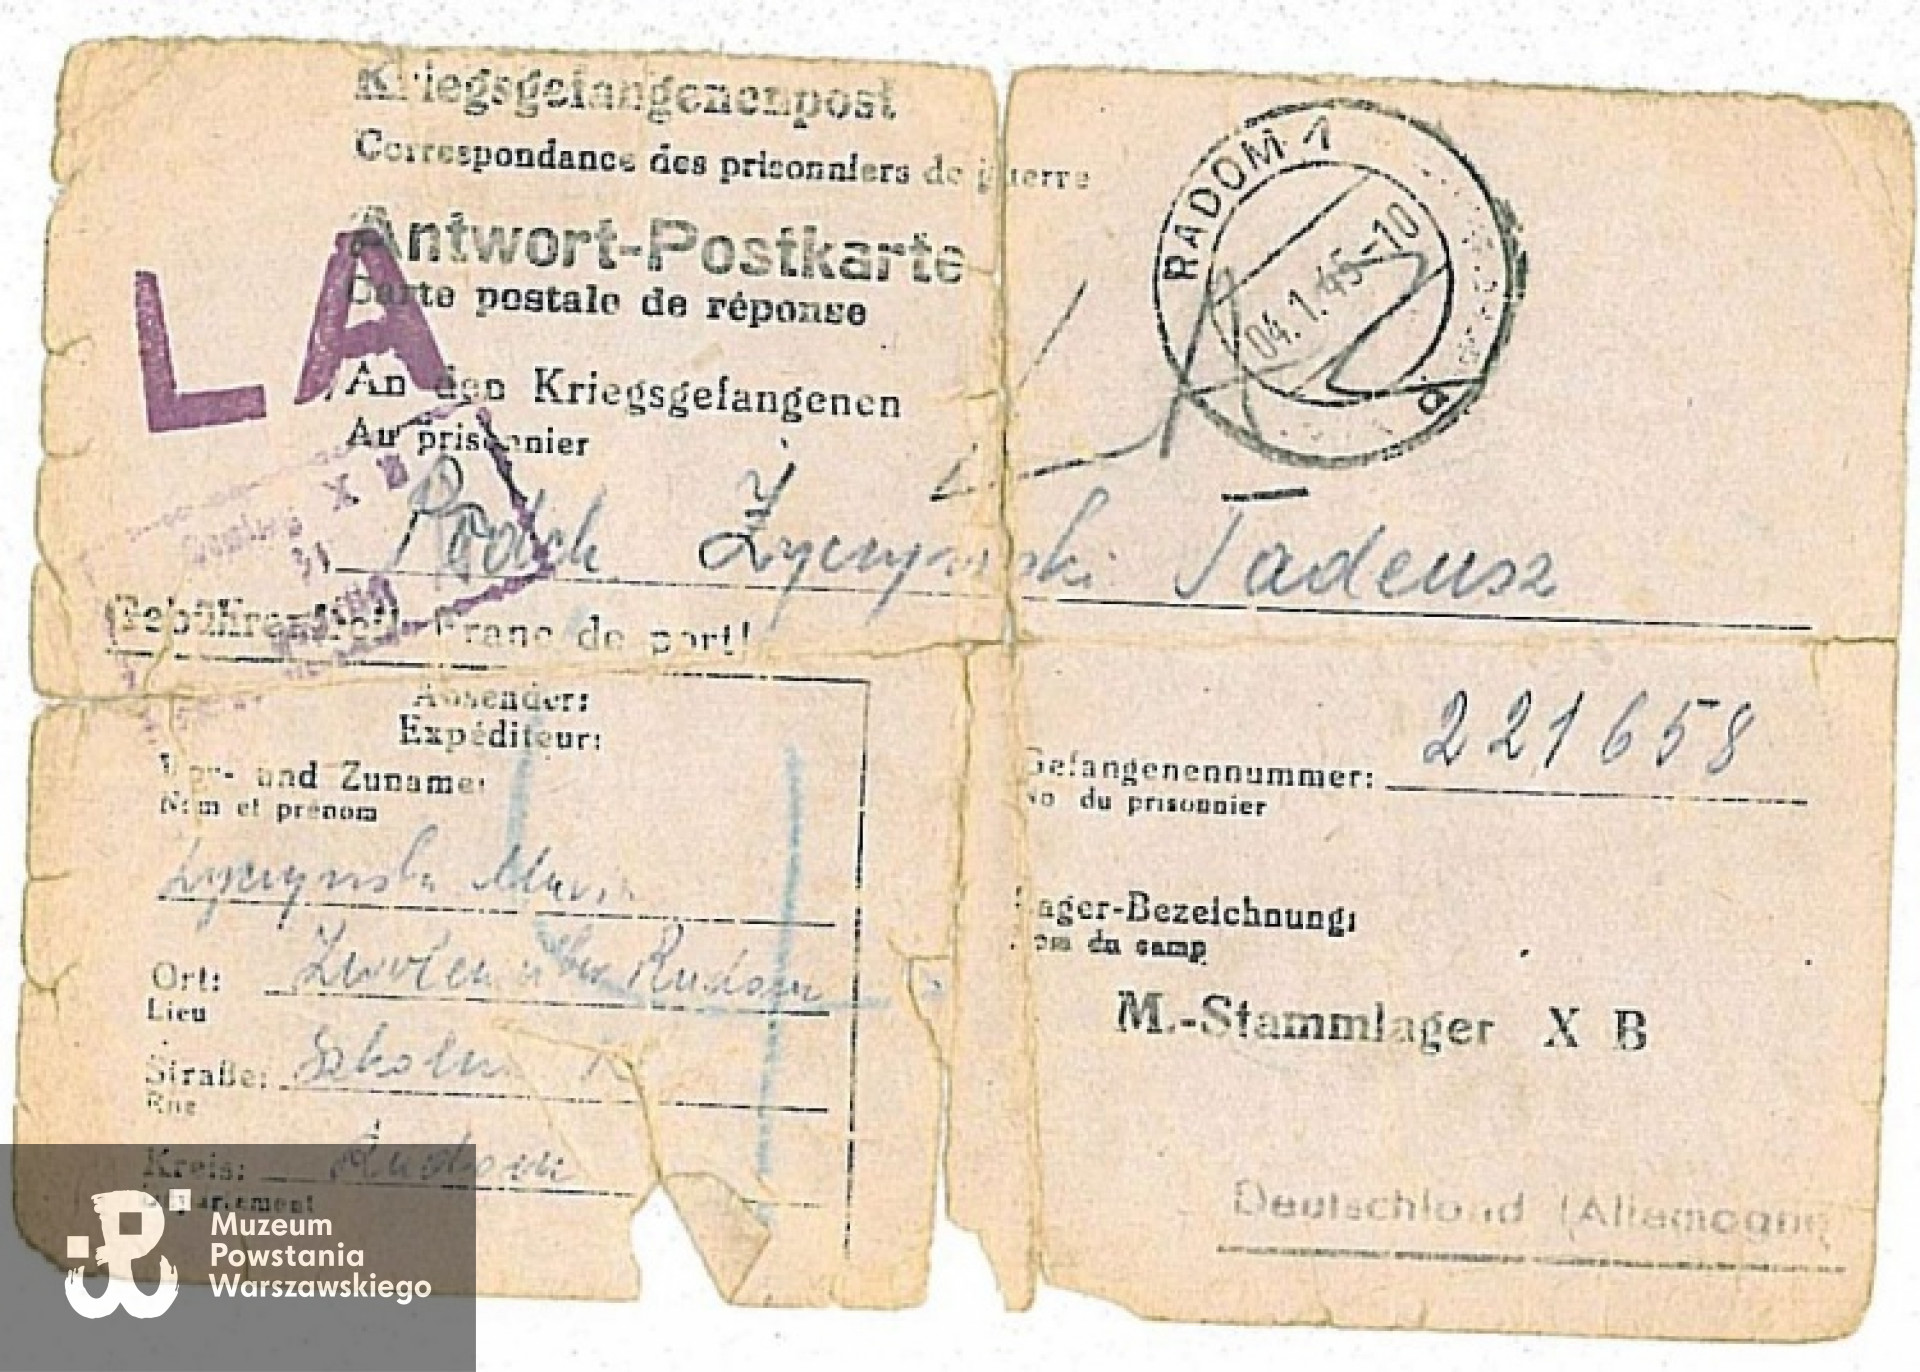 Kriegsgefangenenpost
Correspondance des prisonniers de guerre
Antwort-Postkarte
Carte postale de réponse
LA
RADOM 1
04.1.45-10
a
An den Kriegsgefangenen
Au prisonnier
X B
Podch Życzyński Tadeusz
Gebührenfrei! Franc de port!
Absender:
Expéditeur:
Vor- und Zuname:
Nom et prénom
Życzyńska Maria
Ort: Zwoleń über Radom
Lieu
Straße: Szkolna
Rue
Kreis: Radom
Département
Gefangenennummer: 221658
No du prisonnier
Lager-Bezeichnung:
Nom du camp
M.-Stammlager X B
Deutschland (Allemagne)
Muzeum
Powstania
Warszawskiego